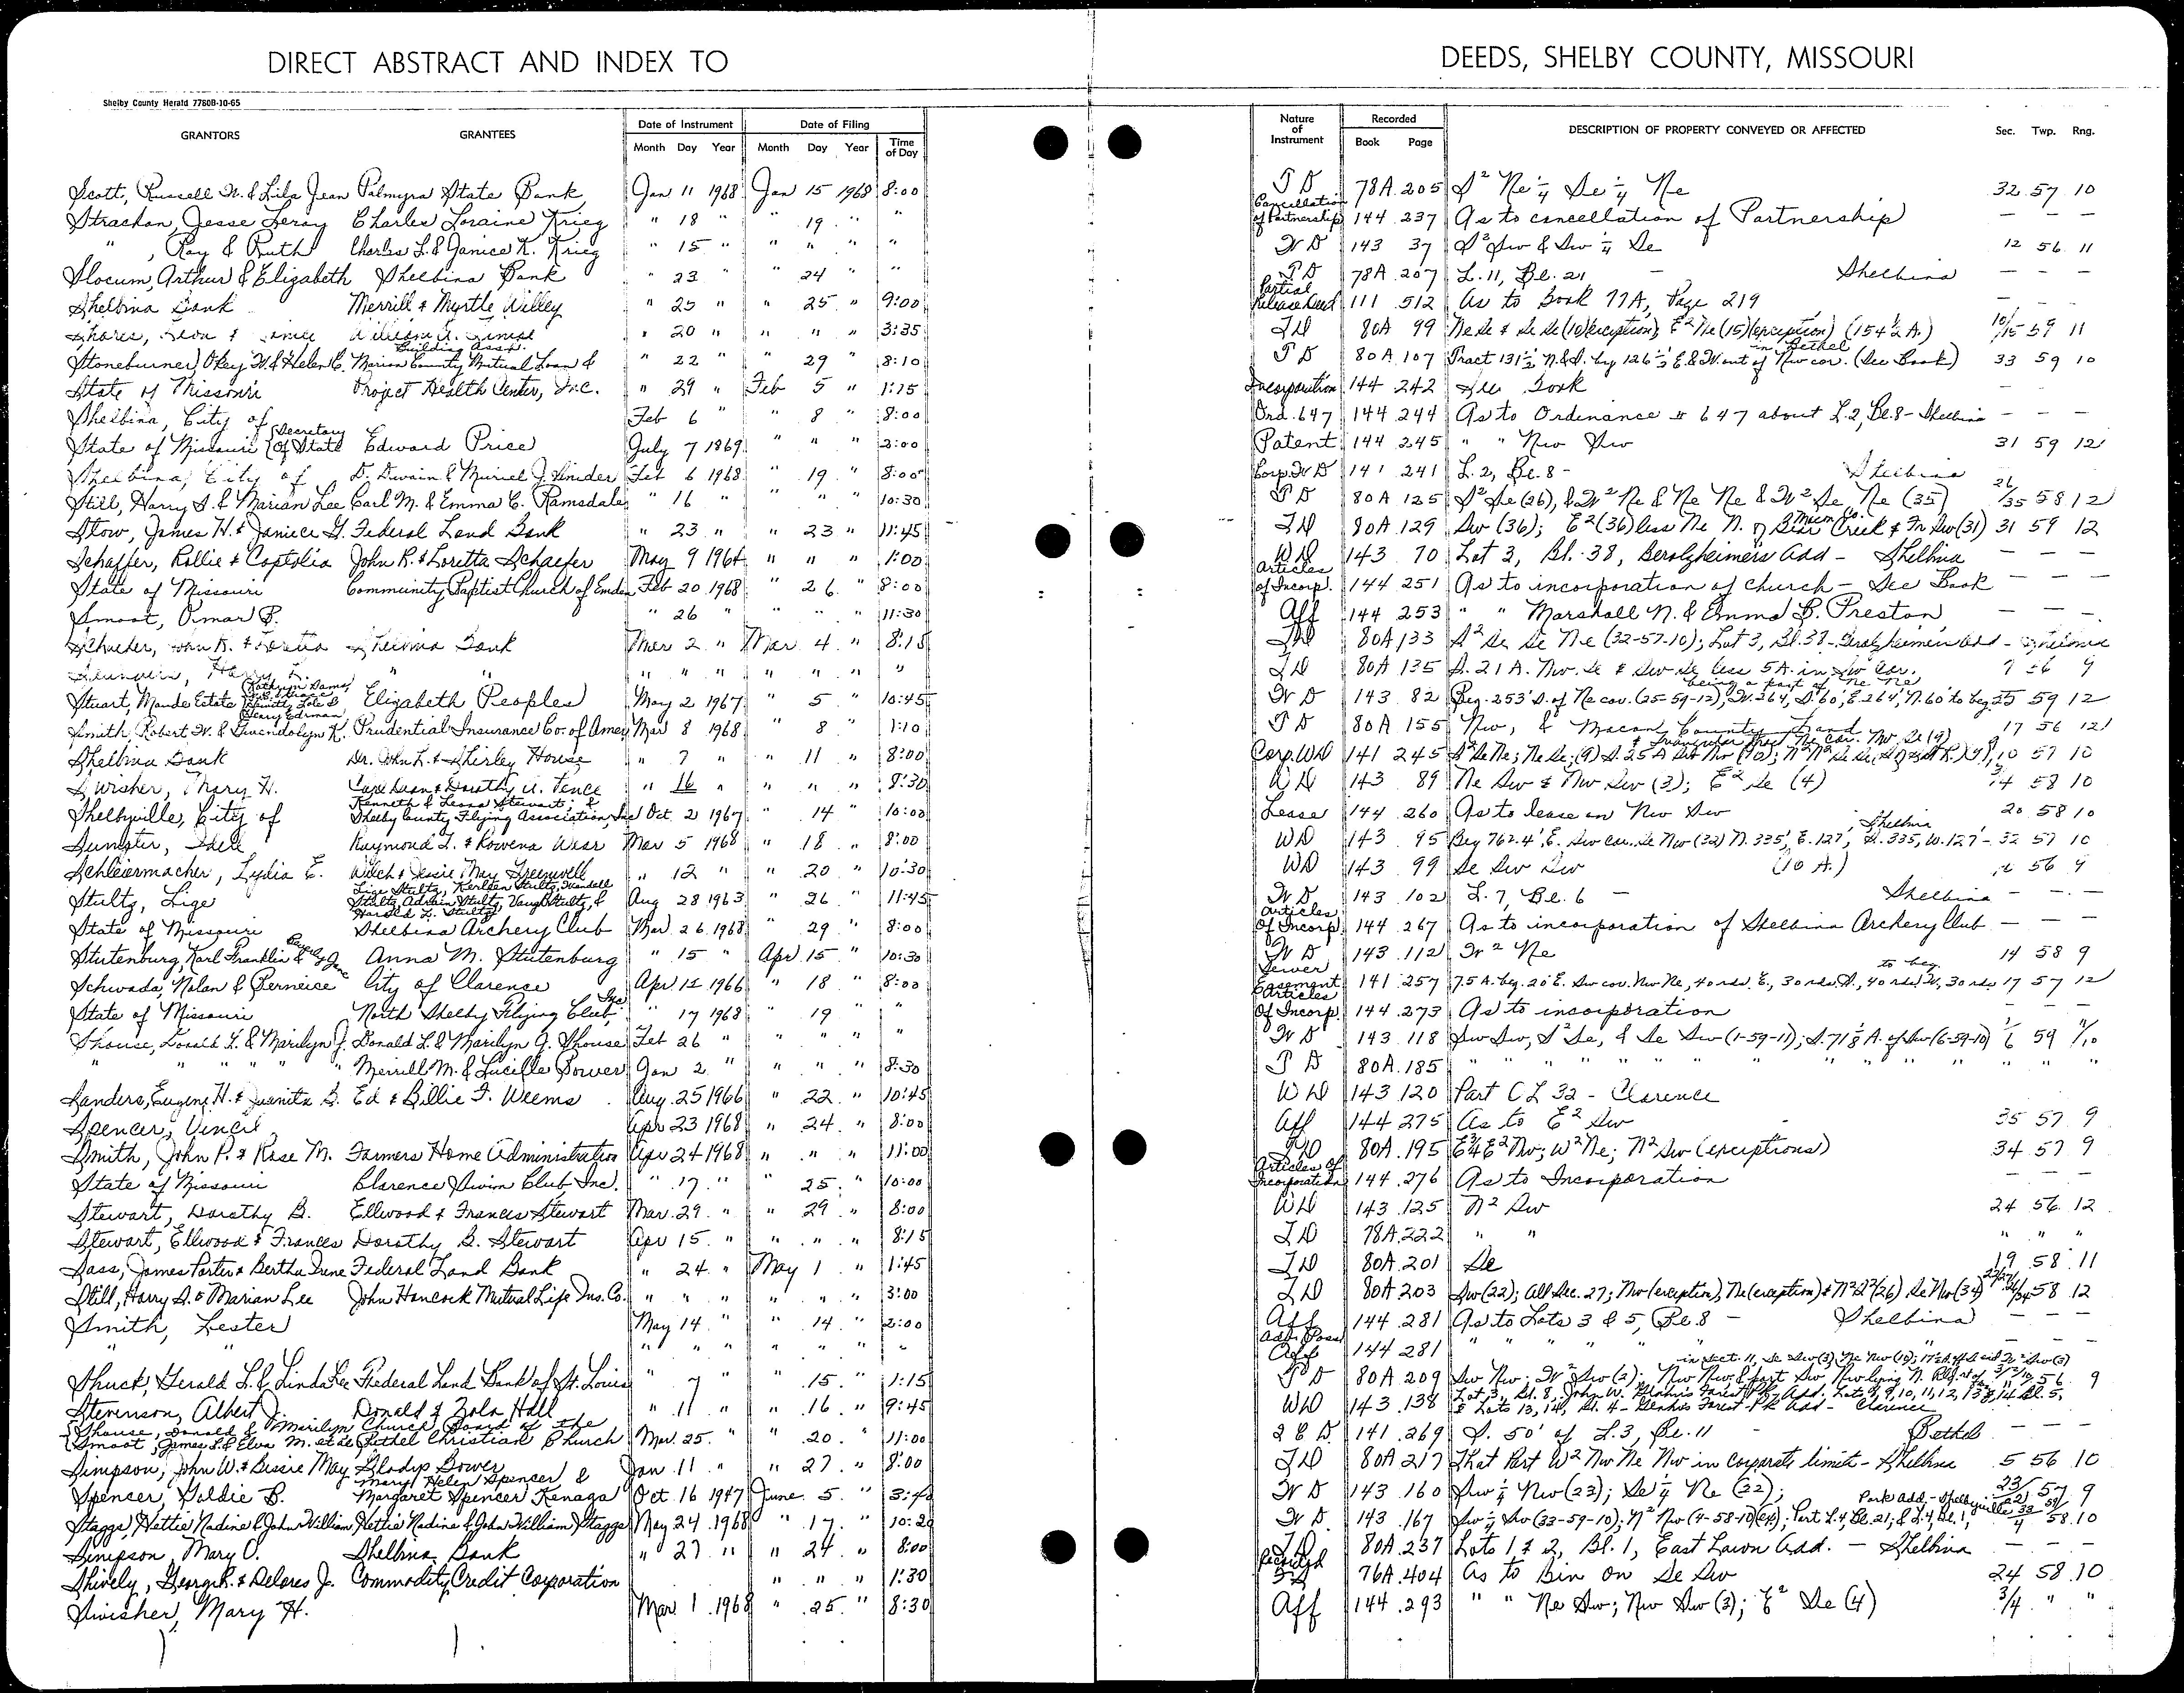 DIRECT ABSTRACT AND INDEX TO DEEDS, SHELBY COUNTY, MISSOURI
Shelby County Herald 7780B-10-65
GRANTORS GRANTEES Date of Instrument Month Day Year Date of Filing Month Day Year Time of Day Nature of Instrument Recorded Book Page DESCRIPTION OF PROPERTY CONVEYED OR AFFECTED Sec. Twp. Rng.
Scott, Russell W. & Lila Jean Palmyra State Bank Jan 11 1968 Jan 15 1968 8:00 T D 78A 205 S² Ne ¼ Se ¼ Ne 32 57 10
Strachan, Jesse Leroy Charles Loraine Krieg " 18 " " 19 " " Cancellation of Partnership 144 237 As to cancellation of Partnership — — —
" , Ray & Ruth Charles L. & Janice K. Krieg " 15 " " " " " W D 143 37 S² Sw & Sw ¼ Se 12 56 11
Slocum, Arthur & Elizabeth Shelbina Bank " 23 " 24 " " T D 78A 207 L. 11, Bl. 21 — Shelbina — — —
Shelbina Bank Merrill & Myrtle Willey " 25 " " 25 " 9:00 Partial Release Deed 111 512 As to Book 77A, Page 219 —
Shores, & " 20 " " " " 3:35 T D 80A 99 Ne Se & Se Se (10)(exception); E² Ne (15)(exception) (154½ A.) 10/15 59 11
Stoneburner, Okey W. & Helen C. Marion County Mutual Loan & Building Assn. " 22 " " 29 " 8:10 T D 80A 107 Tract 131½ N. & S. by 126½ E & W. out of Nw cor. (See Book) in Bethel 33 59 10
State of Missouri Project Health Center, Inc. " 29 " Feb 5 " 1:15 Incorporation 144 242 See Book —
Shelbina, City of Feb 6 " " 8 " 8:00 Ord. 647 144 244 As to Ordinance # 647 about L. 2, Bl. 8 - Shelbina — — —
State of Missouri (Secretary Of State Edward Price July 7 1869 " " " 2:00 Patent 144 245 " " Nw Sw 31 59 12
Shelbina, City of D. Duvain & Muriel J. Snider Feb 6 1968 " 19 " 8:00 Corp. W D 141 241 L. 2, Bl. 8 - Shelbina
Still, Harry S. & Marian Lee Carl M. & Emma C. Ramsdale " 16 " " " " 10:30 T D 80A 125 S² Se (26), & W² Ne & Ne Ne & W² Se Ne (35) 26/35 58 12
Stow, James H. & Janice G. Federal Land Bank " 23 " " 23 " 11:45 T D 80A 129 Sw (36); E² (36) less Ne N. of Bear Creek & Fr. Sw (31) Macon Co. 31 59 12
Schaffer, Rollie & Coptolia John R. & Loretta Schaefer May 9 1964 " " " 1:00 WD 143 70 Lot 3, Bl. 38, Gerolzheimers Add - Shelbina — — —
State of Missouri Community Baptist Church of Emden Feb 20 1968 " 26 " 8:00 Articles of Incorp. 144 251 As to incorporation of church - See Book — — —
Smoot, Omar B. " 26 " " " " 11:30 Aff 144 253 " " Marshall N. & Emma B. Preston — — —
John R. & Loretta Shelbina Bank Mar 2 " Mar 4 " 8:15 TD 80A 133 S² Se Se Ne (32-57-10); Lot 3, Bl. 38 - Gerolzheimers Add - Shelbina
" " " " " " " " T D 80A 135 S. 21 A. Nw Se & Sw Se less 5A. in Sw cor. 7 56 9
Stuart, Maude Estate Elizabeth Peoples May 2 1967 " 5 " 10:45 W D 143 82 Beg. 253' S. of Ne cor. (25-59-12), W. 264, S. 60, E. 264', N. 60 to beg. being a part of Ne Ne 25 59 12
Smith, Robert W. & Gwendolyn K. Prudential Insurance Co. of Amer Mar 8 1968 " 8 " 1:10 T D 80A 155 Nw, & Macon County Land 17 56 12
Shelbina Bank Dr. John L. & Shirley House " 7 " " 11 " 8:00 Corp. WD 141 245 S² Se Ne; Ne Se; (9) 10 57 10
Swisher, Mary H. & Dorothy A. Pence " 16 " " " " 8:30 WD 143 89 Ne Sw & Nw Sw (3); E² Se (4) 3/4 58 10
Shelbyville, City of Kenneth & Leona Stewart; & Shelby County Flying Association, Inc Oct. 2 1967 " 14 " 10:00 Lease 144 260 As to lease on Nw Sw 20 58 10
Sumpter, Raymond L. & Rowena Wear Mar 5 1968 " 18 " 8:00 WD 143 95 Beg 762.4', E. Sw cor. Se Nw (32) N. 335', E. 127', S. 335, W. 127' - Shelbina 32 57 10
Schleiermacher, Lydia E. Welch & Jessie May Greenwell " 12 " " 20 " 10:30 WD 143 99 Se Sw Sw (10 A.) 56 9
Stultz, Lige Lige Stultz, Kerlien Stultz, Wendell Stultz, Adrain Stultz, Vaugh Stultz, & Harold L. Stultz Aug 28 1963 " 26 " 11:45 W D 143 102 L. 7, Bl. 6 — Shelbina — — —
State of Missouri Shelbina Archery Club Mar. 26 1968 " 29 " 8:00 Articles Of Incorp 144 267 As to incorporation of Shelbina Archery Club — — —
Stutenburg, Karl Franklin & Anna M. Stutenburg " 15 " Apr 15 " 10:30 W D 143 112 W² Ne 14 58 9
Schwada, Nolan & Berneice City of Clarence Apr 12 1966 " 18 " 8:00 Sewer Easement 141 257 7.5 A. beg. 20' E. Sw cor. Nw Ne, 40 rds. E., 30 rds. S., 40 rds. W., 30 rds to beg. 17 57 12
State of Missouri North Shelby Flying Club, Inc " 17 1968 " 19 " " Articles Of Incorp. 144 273 As to incorporation — — —
Shouse, Donald L. & Marilyn J. Donald L. & Marilyn J. Shouse Feb 26 " " " " " W D 143 118 Sw Sw, S² Se, & Se Sw (1-59-11); S. 71⅛ A. of Sw (6-59-10) 1/6 59 11/10
" " " " " Merrill M. & Lucille Bower Jan 2 " " " " 8:30 T D 80A 185 " " " " " " " " " " "
Sanders, Eugene H. & Juanita B. Ed & Billie F. Weems Aug. 25 1966 " 22 " 10:45 WD 143 120 Part OL 32 - Clarence
Spencer, Vencil Apr 23 1968 " 24 " 8:00 Aff 144 275 As to E² Sw 35 57 9
Smith, John P. & Rose M. Farmers Home Administration Apr 24 1968 " " " 11:00 TD 80A 195 E¾ E² Nw; W² Ne; N² Sw (exceptions) 34 57 9
State of Missouri Clarence Swim Club, Inc. " 17 " " 25 " 10:00 Articles Of Incorporation 144 276 As to Incorporation — — —
Stewart, Dorothy B. Ellwood & Frances Stewart Mar. 29 " " 29 " 8:00 WD 143 125 N² Sw 24 56 12
Stewart, Ellwood & Frances Dorothy B. Stewart Apr 15 " " " " 8:15 TD 78A 222 " " " " "
Sass, James Porter & Bertha Irene Federal Land Bank " 24 " May 1 " 1:45 TD 80A 201 Se 19 58 11
Still, Harry S. & Marian Lee John Hancock Mutual Life Ins. Co. " " " " " " 3:00 TD 80A 203 Sw (22); All Sec. 27; Nw (exception), Ne (exception) & N² S² (26) Se Nw (34) 58 12
Smith, Lester May 14 " " 14 " 2:00 Aff 144 281 As to Lots 3 & 5, Bl. 8 - Shelbina — — —
" " " " " " " " " Adv. Poss Aff 144 281 " " " " " "
Shuck, Gerald L. & Linda Lee Federal Land Bank of St. Louis " 7 " " 15 " 1:15 T D 80A 209 Sw Nw; W² Sw (2); Nw Nw & part Sw Nw lying N. 56 9
Stevenson, Albert J. Donald & Zola Hall " 11 " " 16 " 9:45 WD 143 138 Lot 3, Bl. 8, John W. Forest Pk. Add. Lots 8, 9, 10, 11, 12, 13 & 14 Bl. 5, & Lots 13, 14, Bl. 4 - Forest Pk Add - Clarence
Shouse, Donald & Marilyn Church Board of the
Smoot, James L. & Elva M. et al Bethel Christian Church Mar. 25 " " 20 " 11:00 Q C D 141 269 S. 50' of L. 3, Bl. 11 - Bethel — — —
Simpson, John W. & Bessie May Gladys Bower Jan 11 " " 27 " 8:00 TD 80A 217 That Part W² Nw Ne Nw in corporate limits - Shelbina 5 56 10
Spencer, Goldie B. Mary Helen Spencer & Margaret Spencer Kenaga Oct. 16 1947 June 5 " W D 143 160 Sw ¼ Nw (23); Se ¼ Ne (22); 23/22 57 9
Staggs, Hettie Nadine & John William Hettie Nadine & John William Staggs May 24 1968 " 17 " 10:20 W D 143 167 Sw ¼ Sw (33-59-10); N² Nw (4-58-10)(ex); Part L. 4, Bl. 21; & L. 4, Bl. 1, Park Add. - Shelbyville 33/4 59/58 10
Simpson, Mary O. Shelbina Bank " 27 " " 24 " 8:00 TD 80A 237 Lots 1 & 2, Bl. 1, East Lawn Add. - Shelbina — — —
Shively, George R. & Delores J. Commodity Credit Corporation " " " 1:30 76A 404 As to Bin on Se Sw 24 58 10
Swisher, Mary H. Mar 1 1968 " 25 " 8:30 Aff 144 293 " " Ne Sw; Nw Sw (3); E² Se (4) 3/4 " "